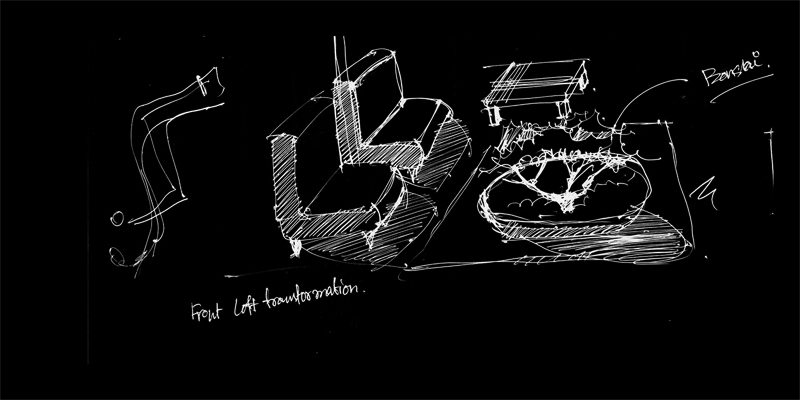 Bonsai.
Front Loft transformation.